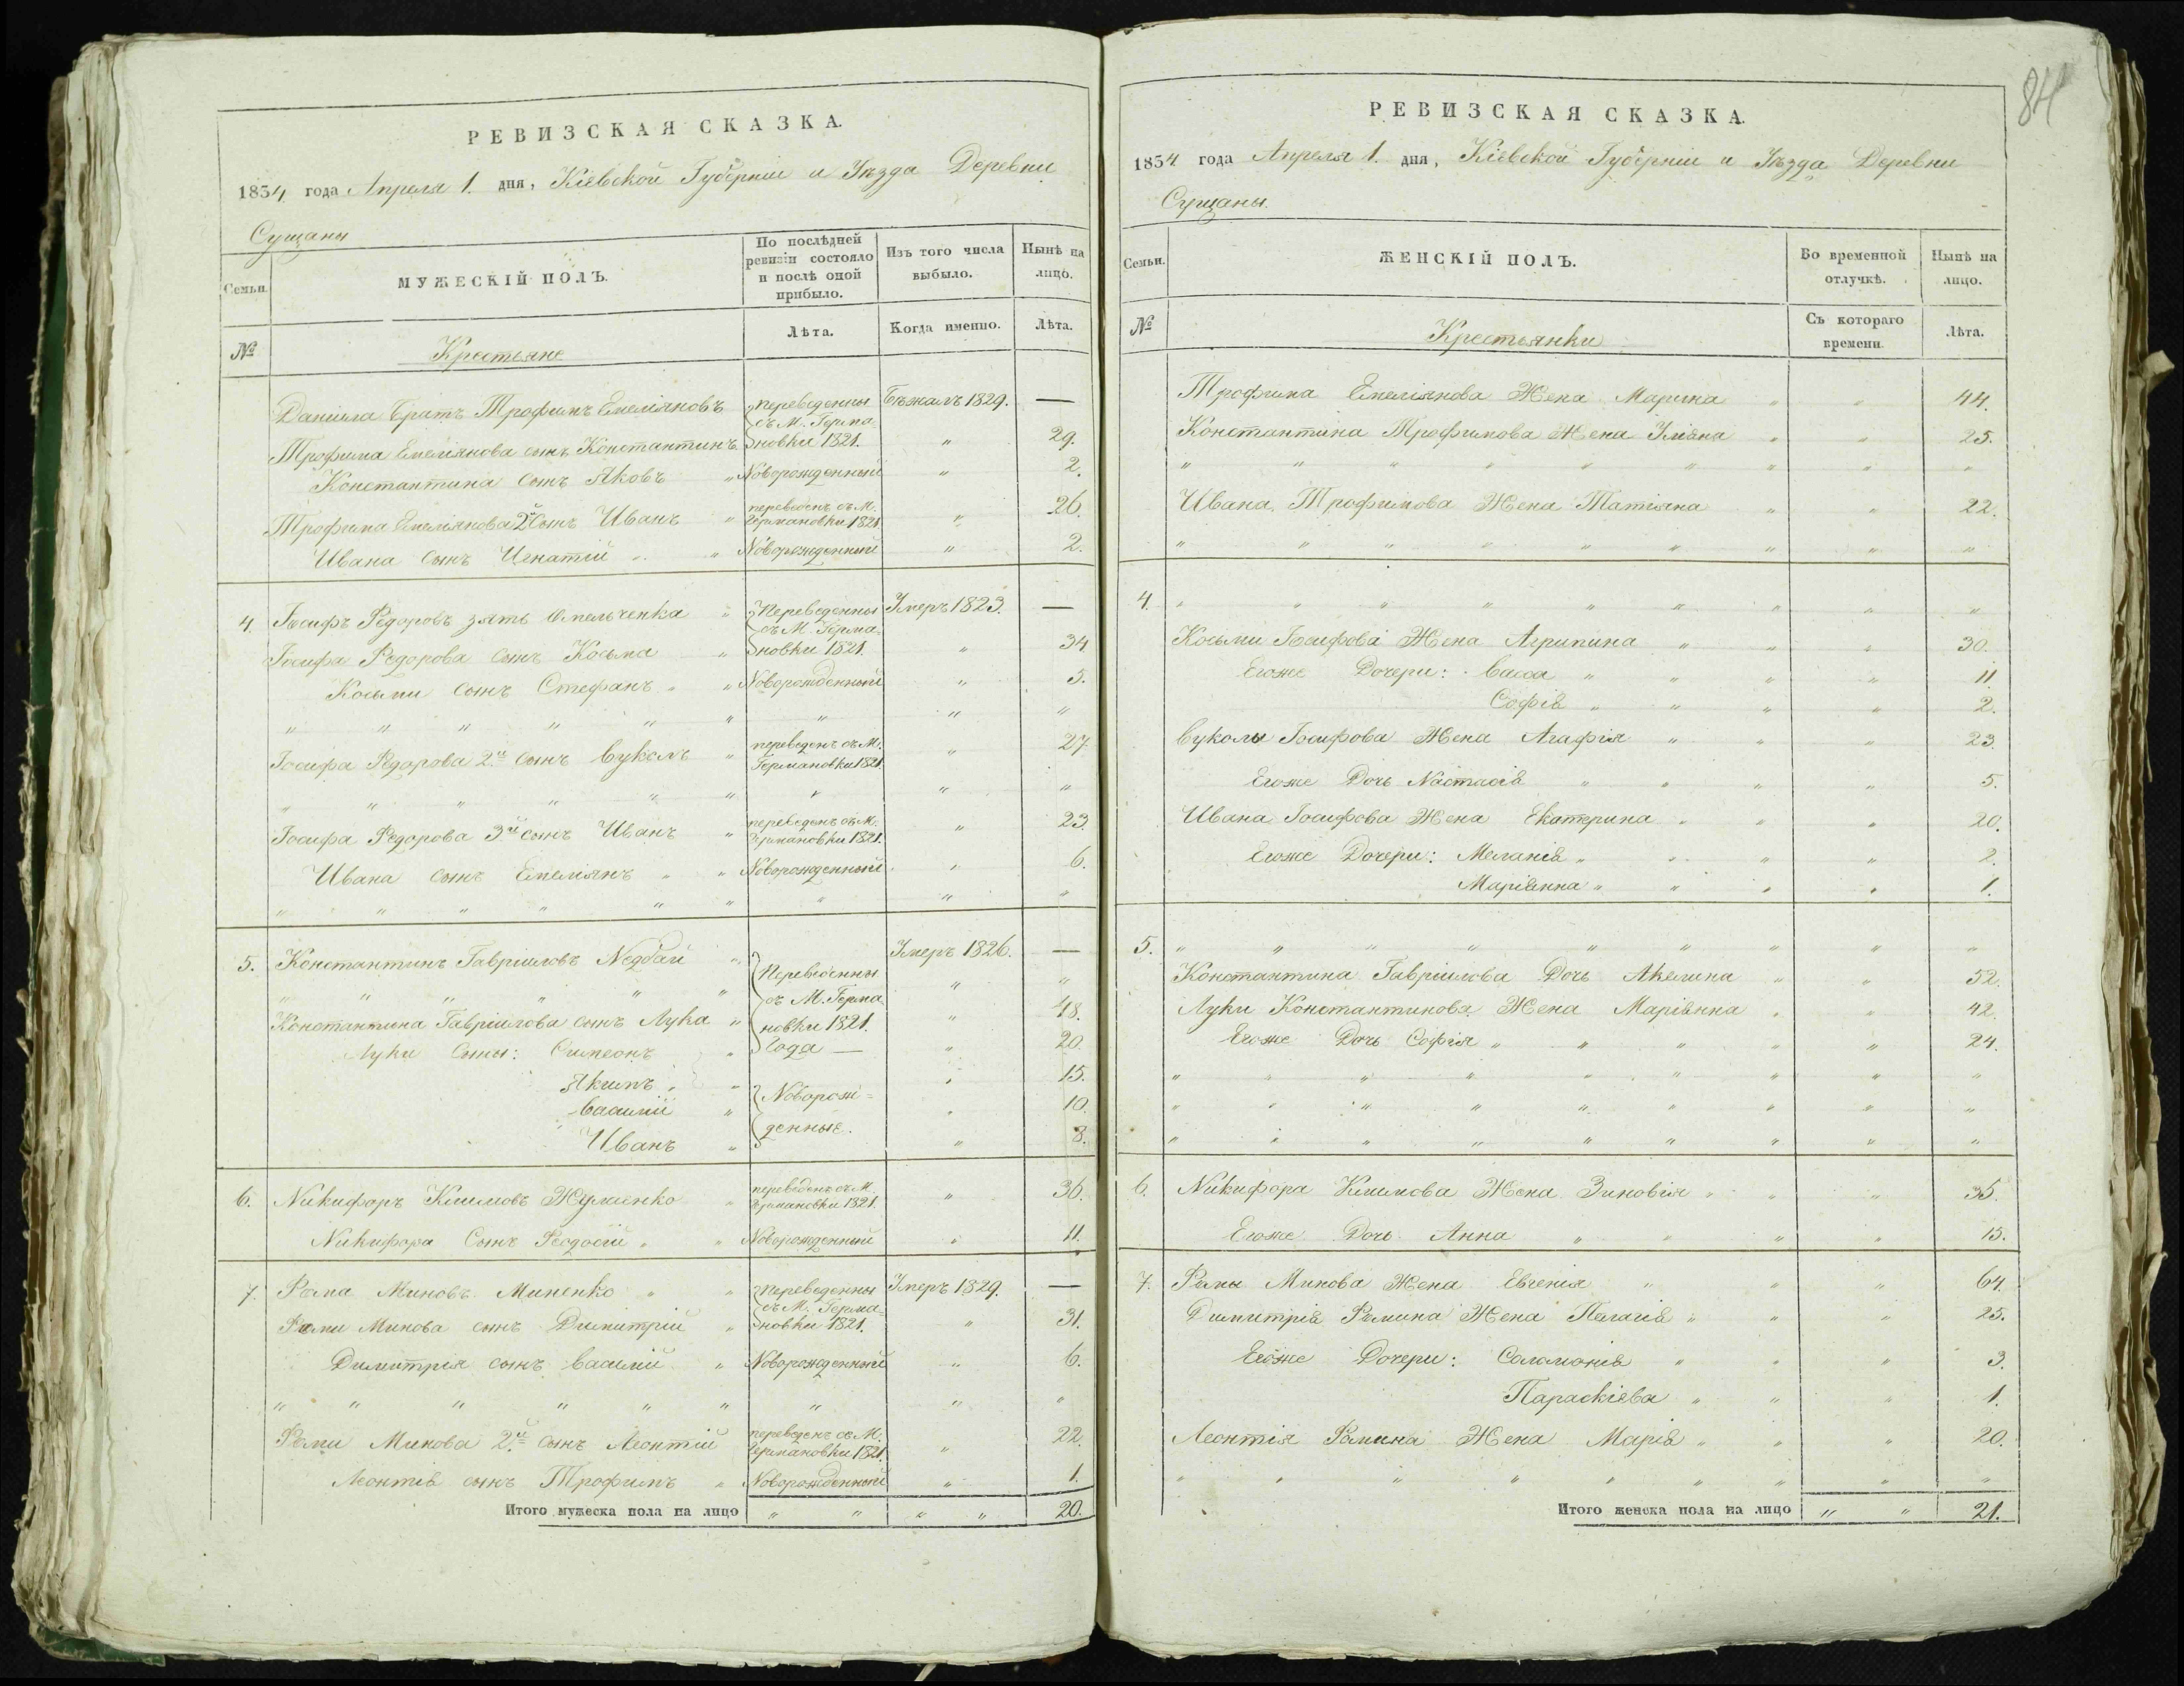 РЕВИЗСКАЯ СКАЗКА.
1834 года Апреля 1. дня, Кіевской Губерніи и Уѣзда Деревни
Сущаны
Семьи.
МУЖЕСКІЙ ПОЛЪ.
По послѣдней ревизіи состояло и послѣ оной прибыло.
Изъ того числа выбыло.
Нынѣ на лицо.
№
Крестьяне
Лѣта.
Когда именно.
Лѣта.
Даніила братъ Трофимъ Емеліяновъ переведенны Бѣжалъ 1829. —
съ М. Герма-
Трофима Емеліянова сынъ Константинъ новки 1821. " 29.
Константина сынъ Яковъ " Новорожденный " 2.
Трофима Емеліянова 2й Сынъ Иванъ " переведенъ съ М. Германовки 1821. " 26.
Ивана сынъ Игнатій " " Новорожденный " 2.
4. Іосифъ Ѳедоровъ зять Омельченка " Переведенны Умеръ 1823. —
съ М. Герма-
Іосифа Ѳедорова сынъ Косьма " новки 1821. " 34
Косьми сынъ Стефанъ " " Новорожденный " 5.
" " " " " " " " "
Іосифа Ѳедорова 2й сынъ Вуколъ " переведенъ съ М. Германовки 1821. " 27.
" " " " " " " " "
Іосифа Ѳедорова 3й сынъ Иванъ " переведенъ съ М. Германовки 1821. " 23.
Ивана сынъ Емеліянъ " " Новорожденный " 6.
" " " " " " " " "
5. Константинъ Гавріиловъ Недбай " Умеръ 1826. —
" " " " " " Переведенны " "
съ М. Герма-
Константина Гавріилова сынъ Лука " новки 1821. " 48.
Луки Сыны: Симеонъ " года — " 20.
Якимъ " " " 15.
Василій " Новорож= " 10.
Иванъ " денные. " 8.
6. Никифоръ Климовъ Жулаенко " переведенъ съ М. Германовки 1821. " 36.
Никифора Сынъ Ѳеодосій " " Новорожденный " 11.
7. Ѳома Миновъ Миненко " " Переведенны Умеръ 1829. —
съ М. Герма-
Ѳоми Минова сынъ Димитрій " новки 1821. " 31.
Димитрія сынъ Василій " Новорожденный " 6.
" " " " " " " " "
Ѳоми Минова 2й сынъ Леонтій переведенъ съ М. Германовки 1821. " 22.
Леонтія сынъ Трофимъ " Новорожденный " 1.
Итого мужеска пола на лицо " " " " 20.
84
РЕВИЗСКАЯ СКАЗКА.
1834 года Апреля 1. дня, Кіевской Губерніи и Уѣзда Деревни
Сущаны.
Семьи.
ЖЕНСКІЙ ПОЛЪ.
Во временной отлучкѣ.
Нынѣ на лицо.
№
Крестьянки
Съ котораго времени.
Лѣта.
Трофима Емеліянова Жена Марина " " 44.
Константина Трофимова Жена Уліяна " " 25.
" " " " " " " " "
Ивана Трофимова Жена Татіяна " " 22.
" " " " " " " " "
4. " " " " " " " " "
Косьми Іосифова Жена Агрипина " " " 30.
Егоже Дочери: Васса " " " " 11
Софія " " " " 2.
Вуколы Іосифова Жена Агафія " " " 23.
Егоже Дочь Настасія " " " " 5.
Ивана Іосифова Жена Екатерина " " " 20.
Егоже Дочери: Меланія " " " " 2.
Маріянна " " " " 1.
5. " " " " " " " " "
Константина Гавріилова Дочь Акелина " " 52.
Луки Константинова Жена Маріянна " " 42.
Егоже Дочь Софія " " " " " 24.
" " " " " " " " "
" " " " " " " " "
" " " " " " " " "
6. Никифора Климова Жена Зиновія " " " 35.
Егоже Дочь Анна " " " " 15.
7. Ѳомы Минова Жена Евгенія " " " 64.
Димитрія Ѳомина Жена Пелагія " " " 25.
Егоже Дочери: Соломонія " " " 3.
Параскіева " " " 1.
Леонтія Ѳомина Жена Марія " " " 20.
" " " " " " " " "
Итого женска пола на лицо " " 21.